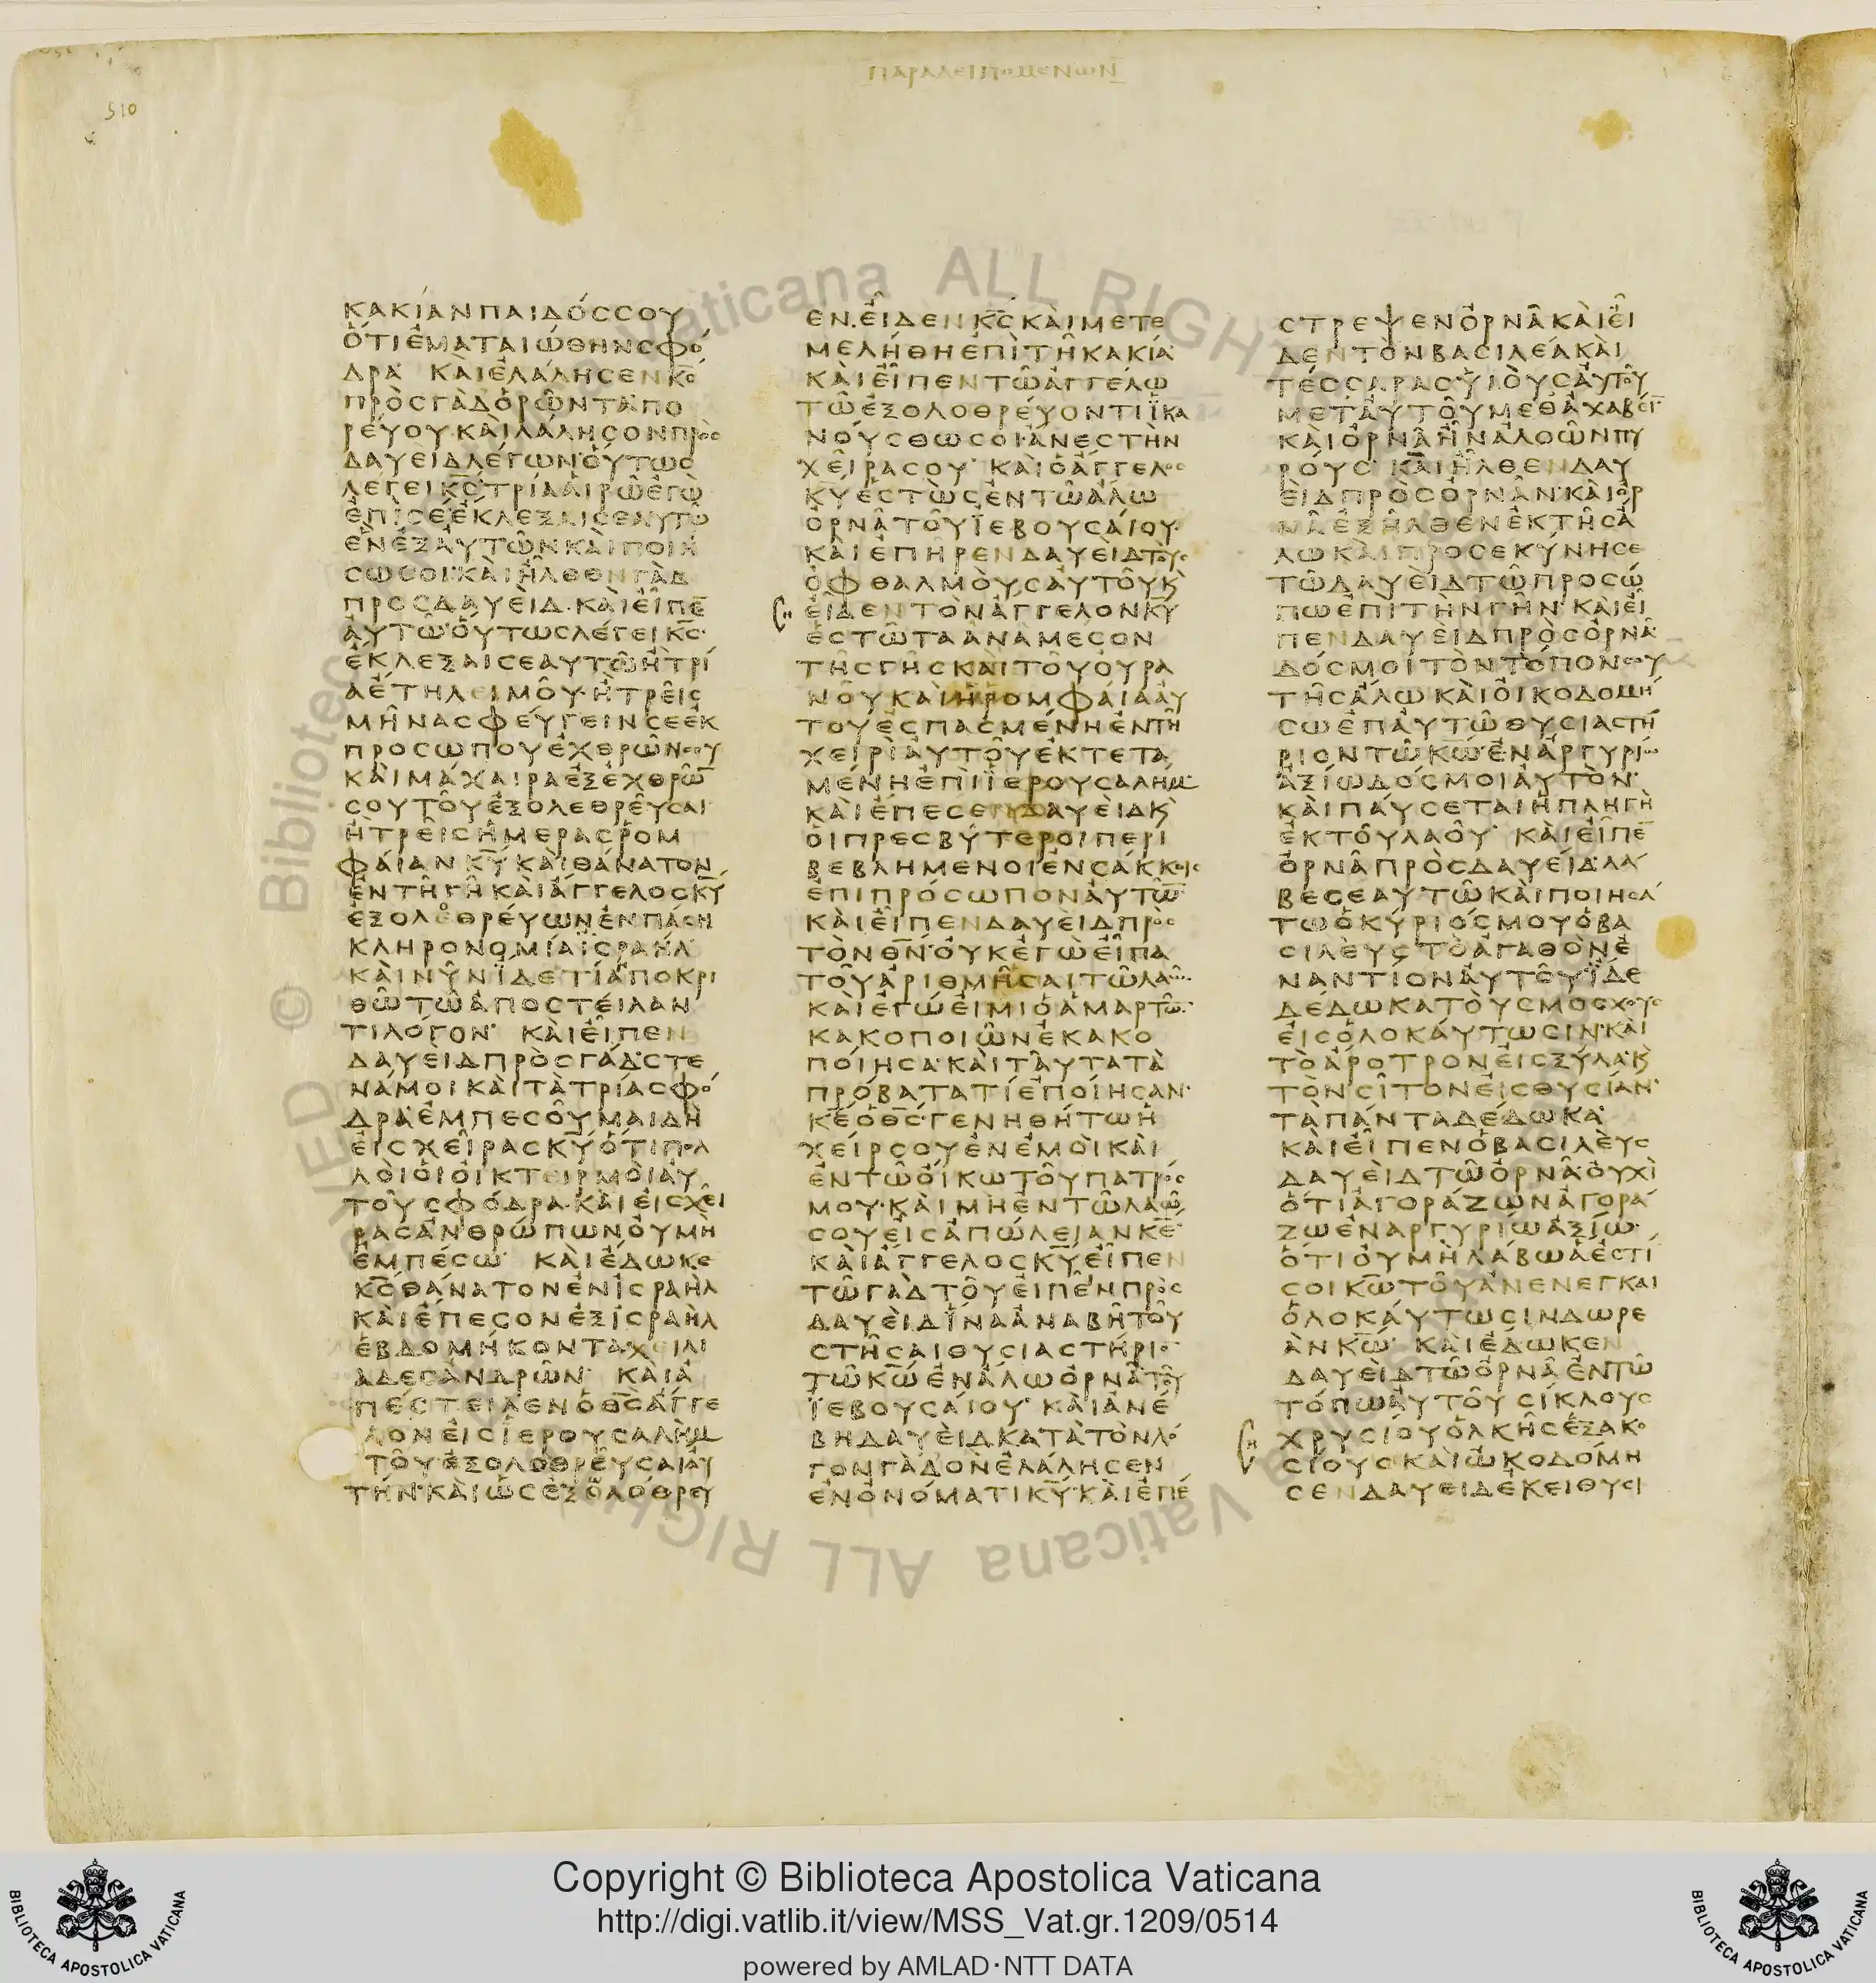 ΠΑΡΑΛΕΙΠΟΜΕΝΩΝ
510
ΚΑΚΙΑΝΠΑΙΔΟΣΣΟΥ
ΟΤΙΕΜΑΤΑΙΩΘΗΝΣΦΟ
ΔΡΑ ΚΑΙΕΛΑΛΗΣΕΝΚΣ
ΠΡΟΣΓΑΔΟΡΩΝΤΑΠΟ
ΡΕΥΟΥΚΑΙΛΑΛΗΣΟΝΠΡΟΣ
ΔΑΥΕΙΔΛΕΓΩΝΟΥΤΩΣ
ΛΕΓΕΙΚΣΤΡΙΑΑΙΡΩΕΓΩ
ΕΠΙΣΕΕΚΛΕΞΑΙΣΕΑΥΤΩ
ΕΝΕΞΑΥΤΩΝΚΑΙΠΟΙΗ
ΣΩΣΟΙΚΑΙΗΛΘΕΝΓΑΔ
ΠΡΟΣΔΑΥΕΙΔΚΑΙΕΙΠΕ
ΑΥΤΩΟΥΤΩΣΛΕΓΕΙΚΣ
ΕΚΛΕΞΑΙΣΕΑΥΤΩΗΤΡΙ
ΑΕΤΗΛΕΙΜΟΥΗΤΡΕΙΣ
ΜΗΝΑΣΦΕΥΓΕΙΝΣΕΕΚ
ΠΡΟΣΩΠΟΥΕΧΘΡΩΝΣΟΥ
ΚΑΙΜΑΧΑΙΡΑΕΞΕΧΘΡΩ
ΣΟΥΤΟΥΕΞΟΛΕΘΡΕΥΣΑΙ
ΗΤΡΕΙΣΗΜΕΡΑΣΡΟΜ
ΦΑΙΑΝΚΥΚΑΙΘΑΝΑΤΟΝ
ΕΝΤΗΓΗΚΑΙΑΓΓΕΛΟΣΚΥ
ΕΞΟΛΕΘΡΕΥΩΝΕΝΠΑΣΗ
ΚΛΗΡΟΝΟΜΙΑΙΣΡΑΗΛ
ΚΑΙΝΥΝΙΔΕΤΙΑΠΟΚΡΙ
ΘΩΤΩΑΠΟΣΤΕΙΛΑΝ
ΤΙΛΟΓΟΝ ΚΑΙΕΙΠΕΝ
ΔΑΥΕΙΔΠΡΟΣΓΑΔΣΤΕ
ΝΑΜΟΙΚΑΙΤΑΤΡΙΑΣΦΟ
ΔΡΑΕΜΠΕΣΟΥΜΑΙΔΗ
ΕΙΣΧΕΙΡΑΣΚΥΟΤΙΠΟΛ
ΛΟΙΟΙΟΙΚΤΕΙΡΜΟΙΑΥ
ΤΟΥΣΦΟΔΡΑΚΑΙΕΙΣΧΕΙ
ΡΑΣΑΝΘΡΩΠΩΝΟΥΜΗ
ΕΜΠΕΣΩ ΚΑΙΕΔΩΚΕ
ΚΣΘΑΝΑΤΟΝΕΝΙΣΡΑΗΛ
ΚΑΙΕΠΕΣΟΝΕΞΙΣΡΑΗΛ
ΕΒΔΟΜΗΚΟΝΤΑΧΕΙΛΙ
ΑΔΕΣΑΝΔΡΩΝ ΚΑΙΑ
ΠΕΣΤΕΙΛΕΝΟΘΣΑΓΓΕ
ΛΟΝΕΙΣΙΕΡΟΥΣΑΛΗΜ
ΤΟΥΕΞΟΛΟΘΡΕΥΣΑΙΑΥ
ΤΗΝΚΑΙΩΣΕΞΟΛΟΘΡΕΥ
ΕΝΕΙΔΕΝΚΣΚΑΙΜΕΤΕ
ΜΕΛΗΘΗΕΠΙΤΗΚΑΚΙΑ
ΚΑΙΕΙΠΕΝΤΩΑΓΓΕΛΩ
ΤΩΕΞΟΛΟΘΡΕΥΟΝΤΙΙΚΑ
ΝΟΥΣΘΩΣΟΙΑΝΕΣΤΗΝ
ΧΕΙΡΑΣΟΥ ΚΑΙΟΑΓΓΕΛΟΣ
ΚΥΕΣΤΩΣΕΝΤΩΑΛΩ
ΟΡΝΑΤΟΥΙΕΒΟΥΣΑΙΟΥ
ΚΑΙΕΠΗΡΕΝΔΑΥΕΙΔΤΟΥΣ
ΟΦΘΑΛΜΟΥΣΑΥΤΟΥΚ
ΕΙΔΕΝΤΟΝΑΓΓΕΛΟΝΚΥ
ΕΣΤΩΤΑΑΝΑΜΕΣΟΝ
ΤΗΣΓΗΣΚΑΙΤΟΥΟΥΡΑ
ΝΟΥΚΑΙΗΡΟΜΦΑΙΑΑΥ
ΤΟΥΕΣΠΑΣΜΕΝΗΕΝΤΗ
ΧΕΙΡΙΑΥΤΟΥΕΚΤΕΤΑ
ΜΕΝΗΕΠΙΙΕΡΟΥΣΑΛΗΜ
ΚΑΙΕΠΕΣΕΝΔΑΥΕΙΔΚ
ΟΙΠΡΕΣΒΥΤΕΡΟΙΠΕΡΙ
ΒΕΒΛΗΜΕΝΟΙΕΝΣΑΚΚΟΙΣ
ΕΠΙΠΡΟΣΩΠΟΝΑΥΤΩ
ΚΑΙΕΙΠΕΝΔΑΥΕΙΔΠΡΟΣ
ΤΟΝΘΝΟΥΚΕΓΩΕΙΠΑ
ΤΟΥΑΡΙΘΜΗΣΑΙΤΩΛΑΩ
ΚΑΙΕΓΩΕΙΜΙΟΑΜΑΡΤΩ
ΚΑΚΟΠΟΙΩΝΕΚΑΚΟ
ΠΟΙΗΣΑΚΑΙΤΑΥΤΑΤΑ
ΠΡΟΒΑΤΑΤΙΕΠΟΙΗΣΑΝ
ΚΕΟΘΣΓΕΝΗΘΗΤΩΗ
ΧΕΙΡΣΟΥΕΝΕΜΟΙΚΑΙ
ΕΝΤΩΟΙΚΩΤΟΥΠΑΤΡΟΣ
ΜΟΥΚΑΙΜΗΕΝΤΩΛΑΩ
ΣΟΥΕΙΣΑΠΩΛΕΙΑΝΚΕ
ΚΑΙΑΓΓΕΛΟΣΚΥΕΙΠΕΝ
ΤΩΓΑΔΤΟΥΕΙΠΕΝΠΡΟΣ
ΔΑΥΕΙΔΙΝΑΑΝΑΒΗΤΟΥ
ΣΤΗΣΑΙΘΥΣΙΑΣΤΗΡΙΟ
ΤΩΚΩΕΝΑΛΩΟΡΝΑΤΟΥ
ΙΕΒΟΥΣΑΙΟΥ ΚΑΙΑΝΕ
ΒΗΔΑΥΕΙΔΚΑΤΑΤΟΝΛΟ
ΓΟΝΓΑΔΟΝΕΛΑΛΗΣΕΝ
ΕΝΟΝΟΜΑΤΙΚΥΚΑΙΕΠΕ
ΣΤΡΕΨΕΝΟΡΝΑΚΑΙΕΙ
ΔΕΝΤΟΝΒΑΣΙΛΕΑΚΑΙ
ΤΕΣΣΑΡΑΣΥΙΟΥΣΑΥΤΟΥ
ΜΕΤΑΥΤΟΥΜΕΘΑΧΑΒΕΙ
ΚΑΙΟΡΝΑΗΝΑΛΟΩΝΠΥ
ΡΟΥΣ ΚΑΙΗΛΘΕΝΔΑΥ
ΕΙΔΠΡΟΣΟΡΝΑΝΚΑΙΟΡ
ΝΑΕΞΗΛΘΕΝΕΚΤΗΣΑ
ΛΩΚΑΙΠΡΟΣΕΚΥΝΗΣΕ
ΤΩΔΑΥΕΙΔΤΩΠΡΟΣΩ
ΠΩΕΠΙΤΗΝΓΗΝΚΑΙΕΙ
ΠΕΝΔΑΥΕΙΔΠΡΟΣΟΡΝΑ
ΔΟΣΜΟΙΤΟΝΤΟΠΟΝΣΟΥ
ΤΗΣΑΛΩΚΑΙΟΙΚΟΔΟΜΗ
ΣΩΕΠΑΥΤΩΘΥΣΙΑΣΤΗ
ΡΙΟΝΤΩΚΩΕΝΑΡΓΥΡΙΩ
ΑΞΙΩΔΟΣΜΟΙΑΥΤΟΝ
ΚΑΙΠΑΥΣΕΤΑΙΗΠΛΗΓΗ
ΕΚΤΟΥΛΑΟΥ ΚΑΙΕΙΠΕ
ΟΡΝΑΠΡΟΣΔΑΥΕΙΔΛΑ
ΒΕΣΕΑΥΤΩΚΑΙΠΟΙΗΣΑ
ΤΩΟΚΥΡΙΟΣΜΟΥΟΒΑ
ΣΙΛΕΥΣΤΟΑΓΑΘΟΝΕ
ΝΑΝΤΙΟΝΑΥΤΟΥΙΔΕ
ΔΕΔΩΚΑΤΟΥΣΜΟΣΧΟΥΣ
ΕΙΣΟΛΟΚΑΥΤΩΣΙΝΚΑΙ
ΤΟΑΡΟΤΡΟΝΕΙΣΞΥΛΑΚ
ΤΟΝΣΙΤΟΝΕΙΣΘΥΣΙΑΝ
ΤΑΠΑΝΤΑΔΕΔΩΚΑ
ΚΑΙΕΙΠΕΝΟΒΑΣΙΛΕΥΣ
ΔΑΥΕΙΔΤΩΟΡΝΑΟΥΧΙ
ΟΤΙΑΓΟΡΑΖΩΝΑΓΟΡΑ
ΖΩΕΝΑΡΓΥΡΙΩΑΞΙΩ
ΟΤΙΟΥΜΗΛΑΒΩΑΕΣΤΙ
ΣΟΙΚΩΤΟΥΑΝΕΝΕΓΚΑΙ
ΟΛΟΚΑΥΤΩΣΙΝΔΩΡΕ
ΑΝΚΩ ΚΑΙΕΔΩΚΕΝ
ΔΑΥΕΙΔΤΩΟΡΝΑΕΝΤΩ
ΤΟΠΩΑΥΤΟΥΣΙΚΛΟΥΣ
ΧΡΥΣΙΟΥΟΛΚΗΣΕΞΑΚΟ
ΣΙΟΥΣΚΑΙΩΚΟΔΟΜΗ
ΣΕΝΔΑΥΕΙΔΕΚΕΙΘΥΣΙ
Copyright © Biblioteca Apostolica Vaticana
http://digi.vatlib.it/view/MSS_Vat.gr.1209/0514
powered by AMLAD·NTT DATA
BIBLIOTECA APOSTOLICA VATICANA
BIBLIOTECA APOSTOLICA VATICANA